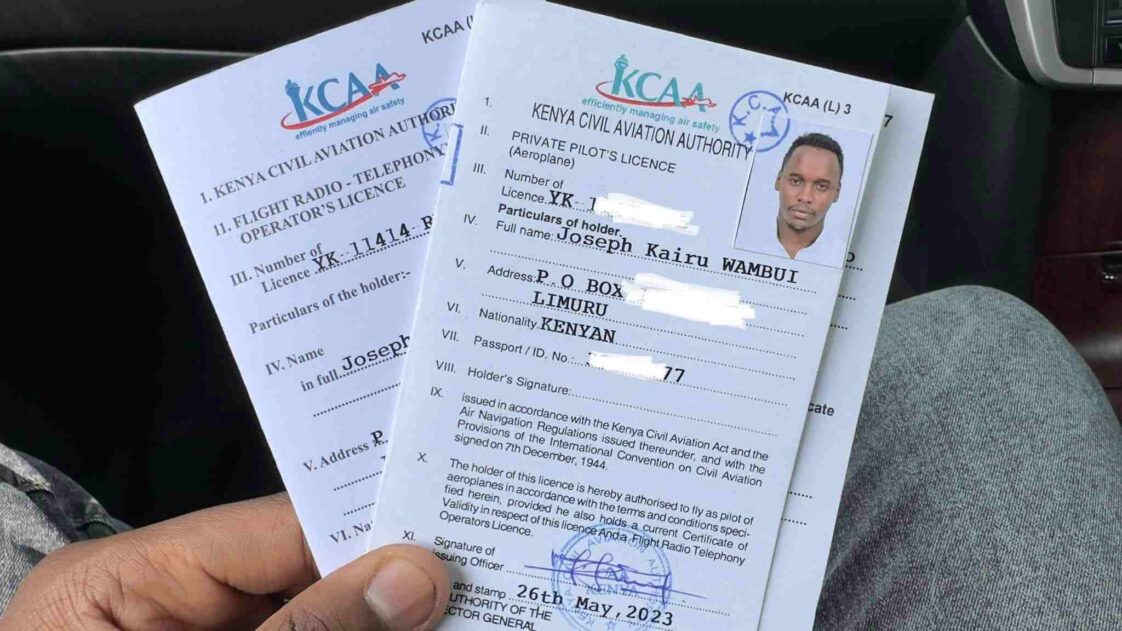 KCAA (L)
KCAA
effiently managing air safety
1. KENYA CIVIL AVIATION AUTHORI
11. FLIGHT RADIO - TELEPHONY
OPERATOR'S LICENCE
III. Number of
Licence YK-11414-R
Particulars of the holder:-
IV. Name
in full Joseph
V. Address P.
VI. Nat
KCAA
efficiently managing air safety
KCAA (L) 3
K.C.A
1. KENYA CIVIL AVIATION AUTHORITY
II. PRIVATE PILOT'S LICENCE
(Aeroplane)
III. Number of
Licence YK-1
Particulars of holder.
IV. Full name: Joseph Kairu WAMBUI
V. Address: P.O BOX
LIMURU
VI. Nationality KENYAN
VII. Passport / ID. No.: 77
VIII. Holder's Signature:
IX. issued in accordance with the Kenya Civil Aviation Act and the
Air Navigation Regulations issued thereunder, and with the
Provisions of the International Convention on Civil Aviation
signed on 7th December, 1944.
X. The holder of this licence is hereby authorised to fly as pilot of
aeroplanes in accordance with the terms and conditions speci-
fied herein, provided he also holds a current Certificate of
Validity in respect of this licence And a Flight Radio Telephony
Operators Licence.
XI. Signature of
issuing Officer
and stamp 26th May, 2023
AUTHORITY OF THE
ECTOR GENERAL
7
cate